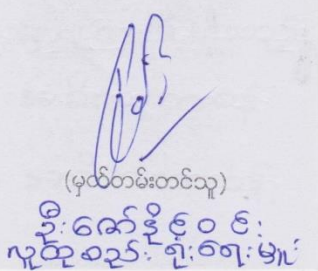 (မှတ်တမ်းတင်သူ)
ဦးဇော်နိုင်ဝင်း
လူထုစည်းရုံးရေးမှူး